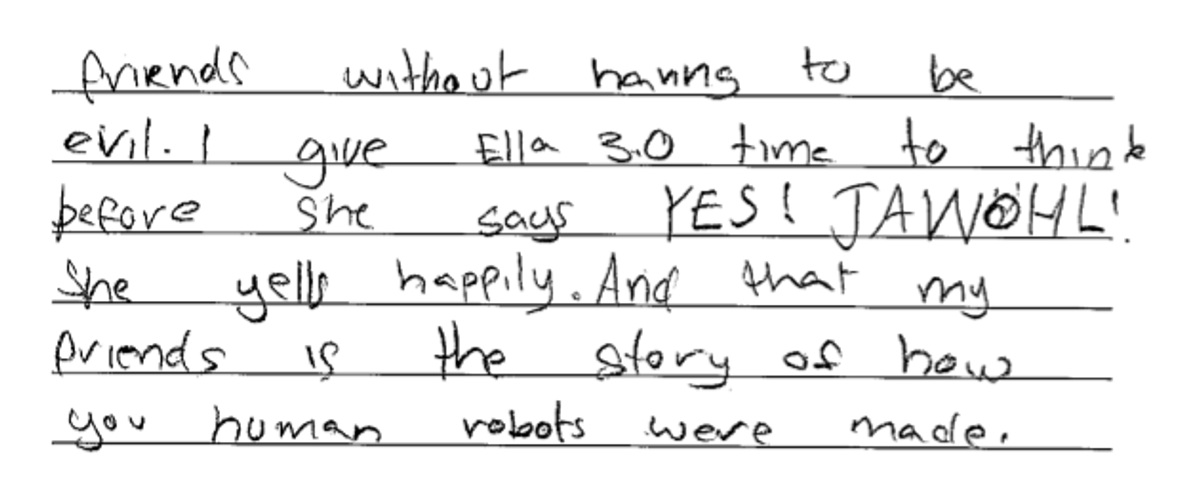 friends without having to be
evil. I give Ella 3.0 time to think
before she says YES! JAWOHL!
She yells happily. And that my
friends is the story of how
you human robots were made.